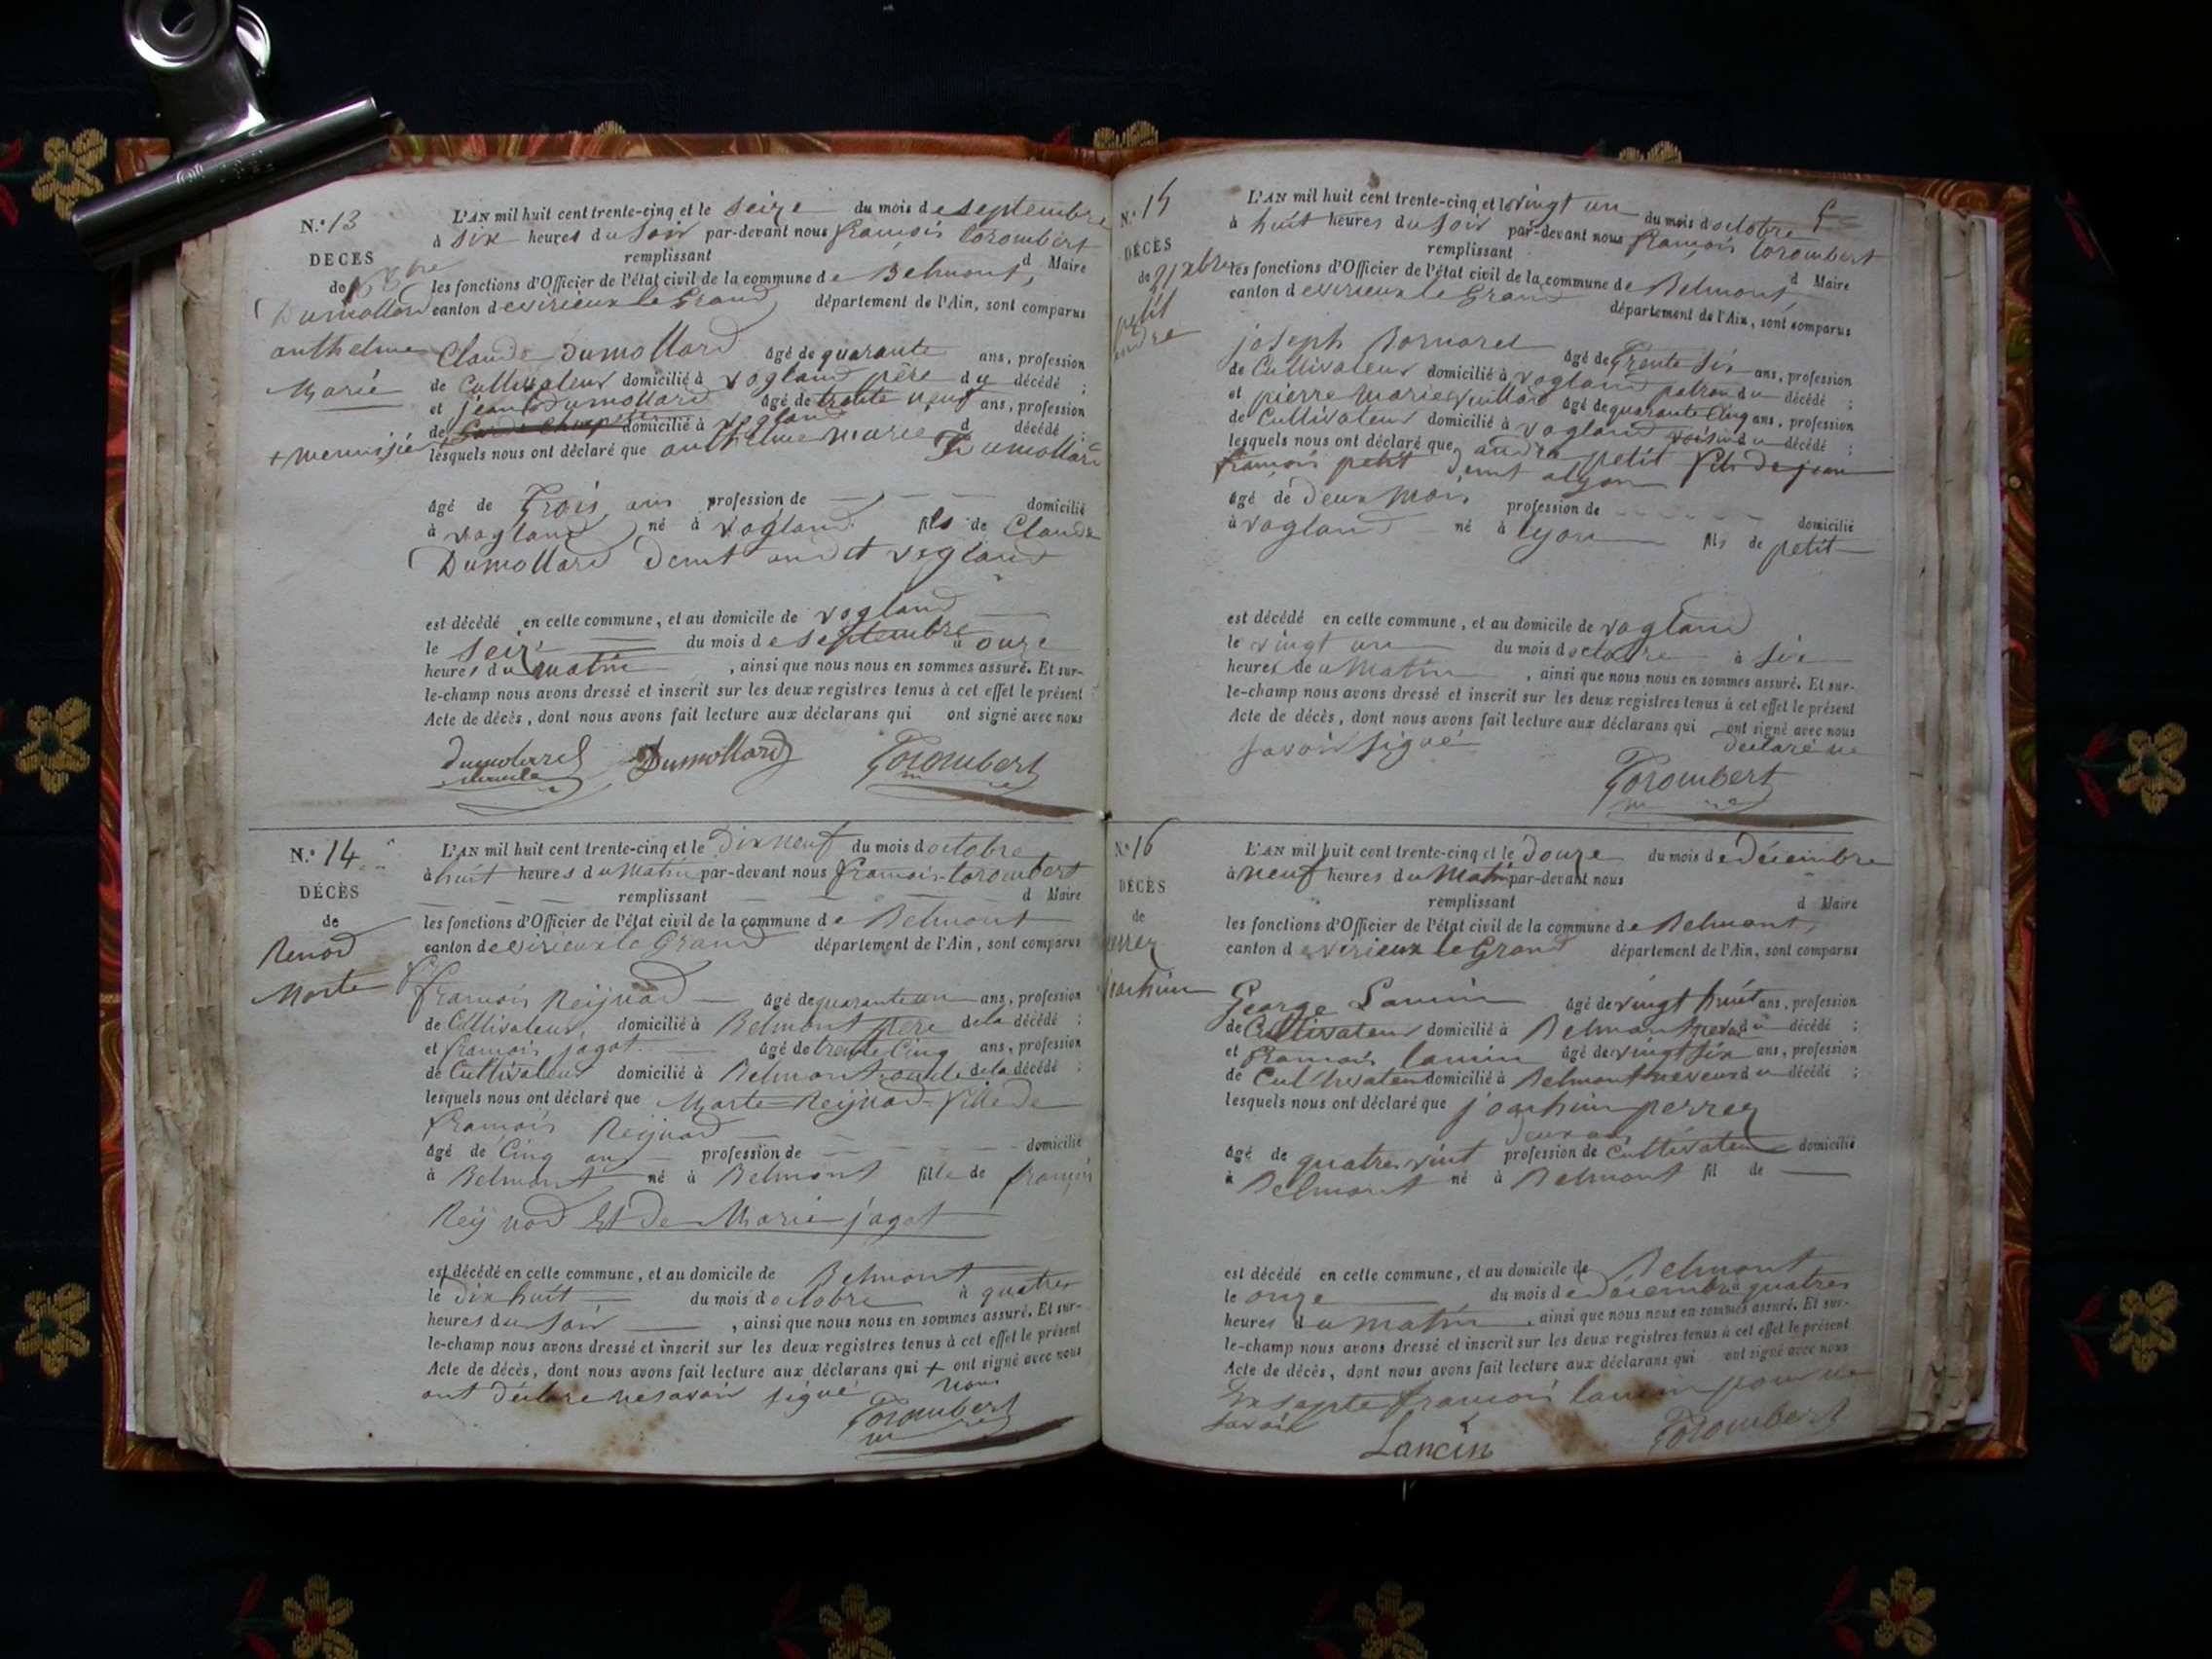 N.º 13
DÉCÈS
de
Dumollard
anthelme
Marie
+ menuisier
L'AN mil huit cent trente-cinq et le Seize du mois de septembre
à six heures du Soir par-devant nous françois Corombert
remplissant d Maire
les fonctions d'Officier de l'état civil de la commune de Belmont,
canton de virieux le Grand département de l'Ain, sont comparus
Claude Dumollard âgé de quarante ans, profession
de Cultivateur domicilié à vogland père du décédé ;
et jean Dumollard âgé de trente neuf ans, profession
de domicilié à vogland d décédé ;
lesquels nous ont déclaré que anthelme marie Dumollard
âgé de Trois ans profession de — — — domicilié
à vogland né à vogland fils de Claude
Dumollard demt audit vogland
est décédé en celle commune, et au domicile de vogland
le seize du mois de septembre à onze
heures du matin , ainsi que nous nous en sommes assuré. Et sur-
le-champ nous avons dressé et inscrit sur les deux registres tenus à cet effet le présent
Acte de décès, dont nous avons fait lecture aux déclarans qui ont signé avec nous
Dumollard Corombert
N.º 14
DÉCÈS
de
Renod
Marte
L'AN mil huit cent trente-cinq et le Dix neuf du mois d octobre
à huit heures du Matin par-devant nous françois Corombert
remplissant d Maire
les fonctions d'Officier de l'état civil de la commune de Belmont
canton de virieux le Grand département de l'Ain, sont comparus
françois Reijnod âgé de quarante un ans, profession
de Cultivateur, domicilié à Belmont père de la décédé ;
et françois jagot âgé de trente Cinq ans, profession
de Cultivateur domicilié à Belmont oncle de la décédé ;
lesquels nous ont déclaré que Marte Reijnod fille de
françois Reijnod
âgé de Cinq ans profession de — — — domicilié
à Belmont né à Belmont fille de françois
Reijnod Et de Marie jagot
est décédé en celle commune, et au domicile de Belmont
le Dix huit du mois d octobre à quatres
heures du Soir , ainsi que nous nous en sommes assuré. Et sur-
le-champ nous avons dressé et inscrit sur les deux registres tenus à cet effet le présent
Acte de décès, dont nous avons fait lecture aux déclarans qui + ont signé avec nous
ont déclaré ne savoir signé
Corombert
N.º 15
DÉCÈS
de 21 xbre
petit
andré
L'AN mil huit cent trente-cinq et le vingt un du mois d octobre
à huit heures du Soir par-devant nous françois Corombert
remplissant d Maire
les fonctions d'Officier de l'état civil de la commune de Belmont,
canton de virieux le Grand département de l'Ain, sont comparus
joseph Bornarel âgé de Trente six ans, profession
de Cultivateur domicilié à vogland patron du décédé ;
et pierre Marie Vuillod âgé de quarante Cinq ans, profession
de Cultivateur domicilié à vogland voisin du décédé ;
lesquels nous ont déclaré que andré petit fils de jean
françois petit demt a lyon
âgé de deux Mois profession de — — — domicilié
à vogland né à lyon fils de petit
est décédé en celle commune, et au domicile de vogland
le vingt un du mois d octobre à six
heures de u Matin , ainsi que nous nous en sommes assuré. Et sur-
le-champ nous avons dressé et inscrit sur les deux registres tenus à cet effet le présent
Acte de décès, dont nous avons fait lecture aux déclarans qui ont signé avec nous
déclaré ne
savoir signé
Corombert
N.º 16
DÉCÈS
de
perrez
joachim
L'AN mil huit cent trente-cinq et le douze du mois de décembre
à neuf heures du Matin par-devant nous
remplissant d Maire
les fonctions d'Officier de l'état civil de la commune de Belmont,
canton de virieux le Grand département de l'Ain, sont comparus
George Lancin âgé de vingt huit ans, profession
de Cultivateur domicilié à Belmont neveu du décédé ;
et françois lancin âgé de vingt six ans, profession
de Cultivateur domicilié à Belmont neveu du décédé ;
lesquels nous ont déclaré que joachim perrez
deux ans
âgé de quatres vint profession de Cultivateur domicilié
à Belmont né à Belmont fil de —
est décédé en celle commune, et au domicile de Belmont
le onze du mois de décembre à quatres
heures du matin , ainsi que nous nous en sommes assuré. Et sur-
le-champ nous avons dressé et inscrit sur les deux registres tenus à cet effet le présent
Acte de décès, dont nous avons fait lecture aux déclarans qui ont signé avec nous
Exsepte françois lancin pour ne
savoir
Lancin Corombert